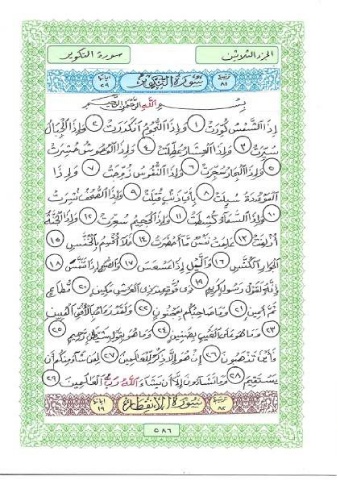 الجزء الثلاثين سورة التكوير
ترتيبها ٨١ سُورَةُ التَّكْوِيرِ آياتها ٢٩
بِسْمِ اللَّهِ الرَّحْمَٰنِ الرَّحِيمِ
إِذَا الشَّمْسُ كُوِّرَتْ ١ وَإِذَا النُّجُومُ انكَدَرَتْ ٢ وَإِذَا الْجِبَالُ
سُيِّرَتْ ٣ وَإِذَا الْعِشَارُ عُطِّلَتْ ٤ وَإِذَا الْوُحُوشُ حُشِرَتْ
٥ وَإِذَا الْبِحَارُ سُجِّرَتْ ٦ وَإِذَا النُّفُوسُ زُوِّجَتْ ٧ وَإِذَا
الْمَوْءُودَةُ سُئِلَتْ ٨ بِأَيِّ ذَنبٍ قُتِلَتْ ٩ وَإِذَا الصُّحُفُ نُشِرَتْ
١٠ وَإِذَا السَّمَاءُ كُشِطَتْ ١١ وَإِذَا الْجَحِيمُ سُعِّرَتْ ١٢ وَإِذَا الْجَنَّةُ
أُزْلِفَتْ ١٣ عَلِمَتْ نَفْسٌ مَّا أَحْضَرَتْ ١٤ فَلَا أُقْسِمُ بِالْخُنَّسِ ١٥
الْجَوَارِ الْكُنَّسِ ١٦ وَاللَّيْلِ إِذَا عَسْعَسَ ١٧ وَالصُّبْحِ إِذَا تَنَفَّسَ ١٨
إِنَّهُ لَقَوْلُ رَسُولٍ كَرِيمٍ ١٩ ذِي قُوَّةٍ عِندَ ذِي الْعَرْشِ مَكِينٍ ٢٠ مُّطَاعٍ
ثَمَّ أَمِينٍ ٢١ وَمَا صَاحِبُكُم بِمَجْنُونٍ ٢٢ وَلَقَدْ رَآهُ بِالْأُفُقِ الْمُبِينِ
٢٣ وَمَا هُوَ عَلَى الْغَيْبِ بِضَنِينٍ ٢٤ وَمَا هُوَ بِقَوْلِ شَيْطَانٍ رَّجِيمٍ ٢٥
فَأَيْنَ تَذْهَبُونَ ٢٦ إِنْ هُوَ إِلَّا ذِكْرٌ لِّلْعَالَمِينَ ٢٧ لِمَن شَاءَ مِنكُمْ أَن
يَسْتَقِيمَ ٢٨ وَمَا تَشَاءُونَ إِلَّا أَن يَشَاءَ اللَّهُ رَبُّ الْعَالَمِينَ ٢٩
ترتيبها ٨٢ سُورَةُ الانْفِطَارِ آياتها ١٩
٥٨٦